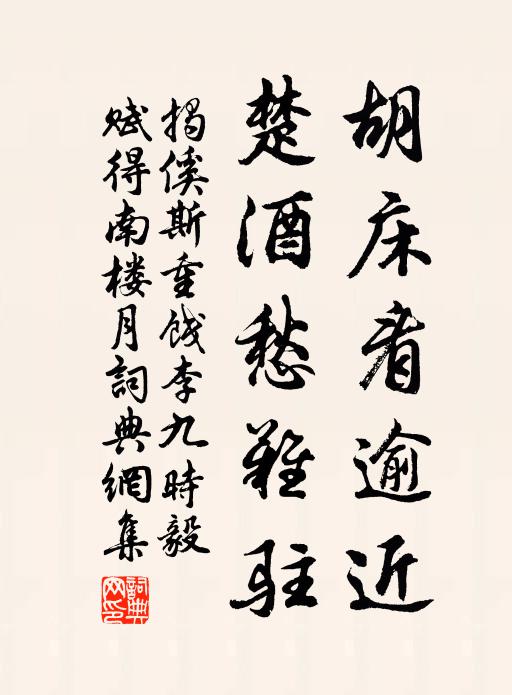 胡床看逾近
楚酒愁难驻
揭傒斯重饯李九時毅
赋得南楼月詞典網集
詞典网印